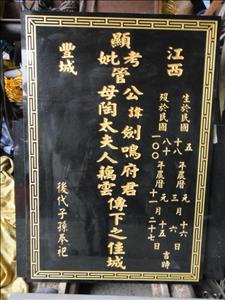 江西
生於民國五十八年農曆三元月十六六日
歿於民國八十一〇〇年農曆元十一月十五二十七日吉時
顯考妣管公諱劍鳴府君母陶太夫人藕雲傳下之佳城
豐城
後代子孫奉祀